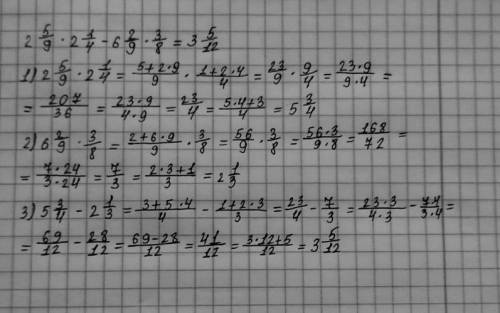 2 5/9 · 2 1/4 - 6 2/9 · 3/8 = 3 5/12
1) 2 5/9 · 2 1/4 = (5+2·9)/9 · (1+2·4)/4 = 23/9 · 9/4 = (23·9)/(9·4) =
= 207/36 = (23·9)/(4·9) = 23/4 = (5·4+3)/4 = 5 3/4
2) 6 2/9 · 3/8 = (2+6·9)/9 · 3/8 = 56/9 · 3/8 = (56·3)/(9·8) = 168/72 =
= (7·24)/(3·24) = 7/3 = (2·3+1)/3 = 2 1/3
3) 5 3/4 - 2 1/3 = (3+5·4)/4 - (1+2·3)/3 = 23/4 - 7/3 = (23·3)/(4·3) - (7·4)/(3·4) =
= 69/12 - 28/12 = (69-28)/12 = 41/12 = (3·12+5)/12 = 3 5/12